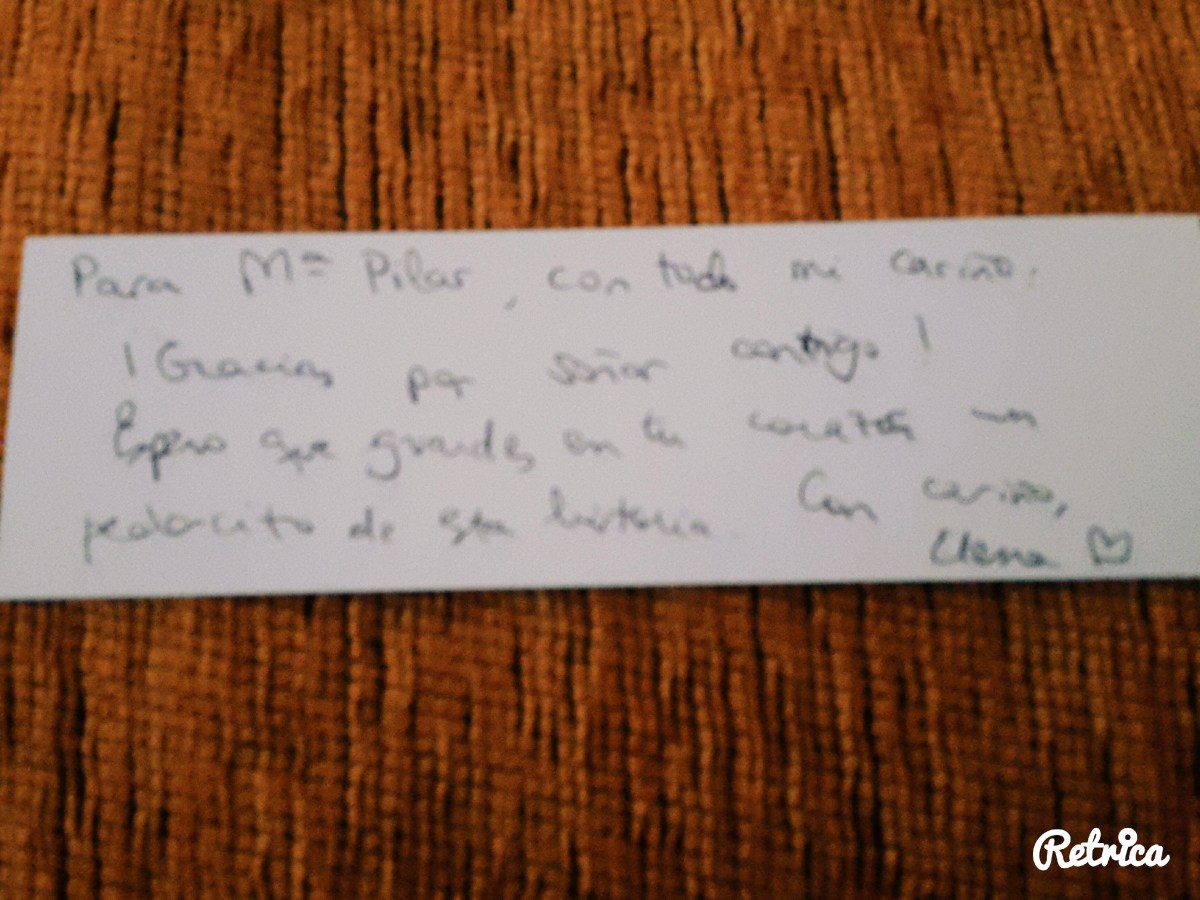 Para Mª Pilar, con todo mi cariño:
¡Gracias por soñar contigo!
Espero que guardes en tu corazón un
pedacito de esta historia. Con cariño,
Retrica